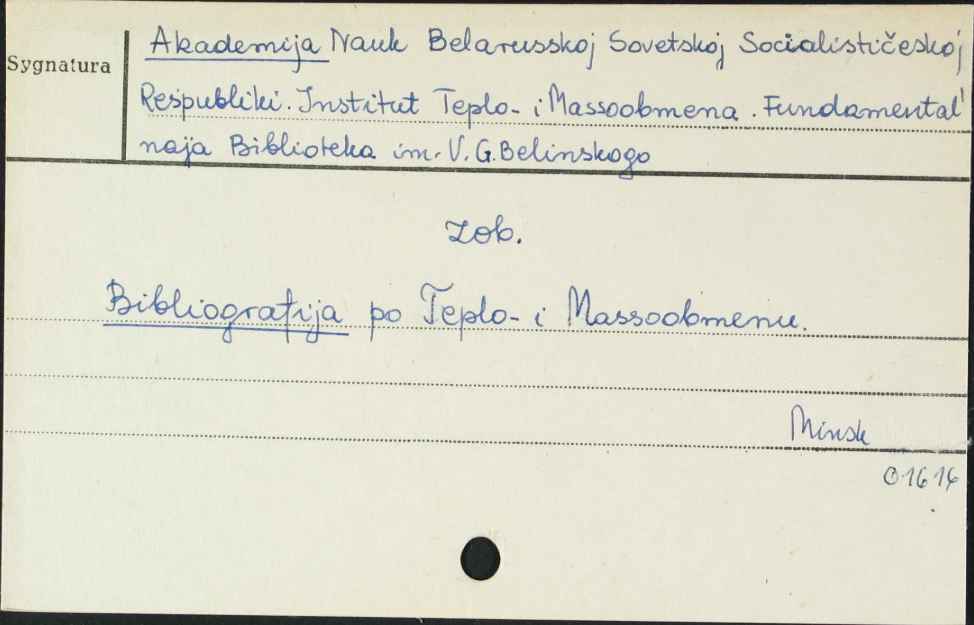 Akademija Nauk Belarusskoj Sovetskoj Socialističeskoj
Sygnatura
Respubliki. Institut Teplo- i Massoobmena. Fundamental'
naja Biblioteka im. V. G. Belinskogo
Zob.
Bibliografija po Teplo- i Massoobmenu.
Minsk
01614